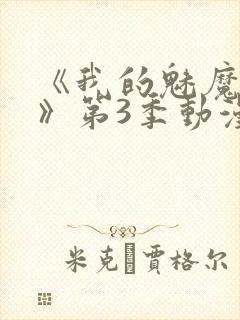 《我的魅魔
》第3季動漫
米克·賈格尔